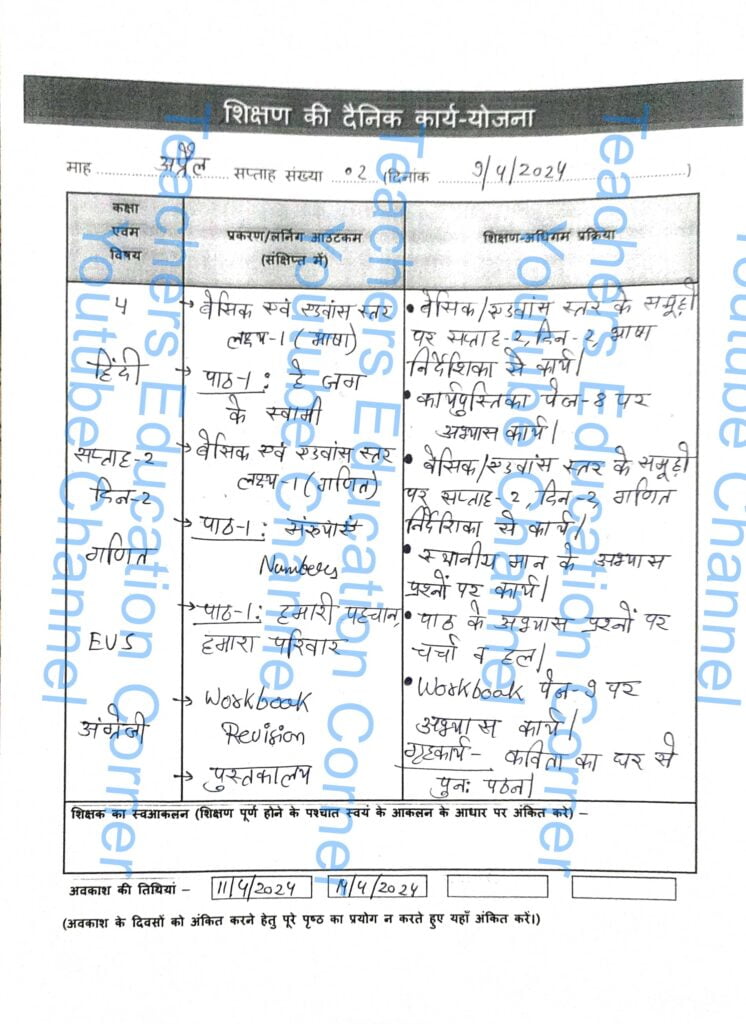 शिक्षण की दैनिक कार्य-योजना
माह अप्रैल सप्ताह संख्या 02 (दिनांक 9/4/2024)
कक्षा
एवम
विषय
प्रकरण/लर्निंग आउटकम
(संक्षिप्त में)
शिक्षण-अधिगम प्रक्रिया
4
हिंदी
सप्ताह-2
दिन-2
गणित
EVS
अंग्रेजी
→ बैसिक एवं एडवांस स्तर
लक्ष्य-1 (भाषा)
→ पाठ-1 : हे जग
के स्वामी
→ बैसिक एवं एडवांस स्तर
लक्ष्य-1 (गणित)
→ पाठ-1 : संख्याएं
Numbers
→ पाठ-1: हमारी पहचान,
हमारा परिवार
→ Workbook
Revision
→ पुस्तकालय
• बैसिक/एडवांस स्तर के समूहों
पर सप्ताह-2, दिन-2, भाषा
निर्देशिका से कार्य।
• कार्यपुस्तिका पेज-8 पर
अभ्यास कार्य।
• बैसिक/एडवांस स्तर के समूहों
पर सप्ताह-2, दिन-2, गणित
निर्देशिका से कार्य।
• स्थानीय मान के अभ्यास
प्रश्नों पर कार्य।
• पाठ के अभ्यास प्रश्नों पर
चर्चा व हल।
• Workbook पेज-9 पर
अभ्यास कार्य।
गृहकार्य- कविता का घर से
पुनः पठन।
शिक्षक का स्वआकलन (शिक्षण पूर्ण होने के पश्चात स्वयं के आकलन के आधार पर अंकित करे) –
अवकाश की तिथियां – 11/4/2024 14/4/2024
(अवकाश के दिवसों को अंकित करने हेतु पूरे पृष्ठ का प्रयोग न करते हुए यहाँ अंकित करें।)
Teachers Education Corner
Youtube Channel
Teachers Education Corner
Youtube Channel
Teachers Education Corner
Youtube Channel